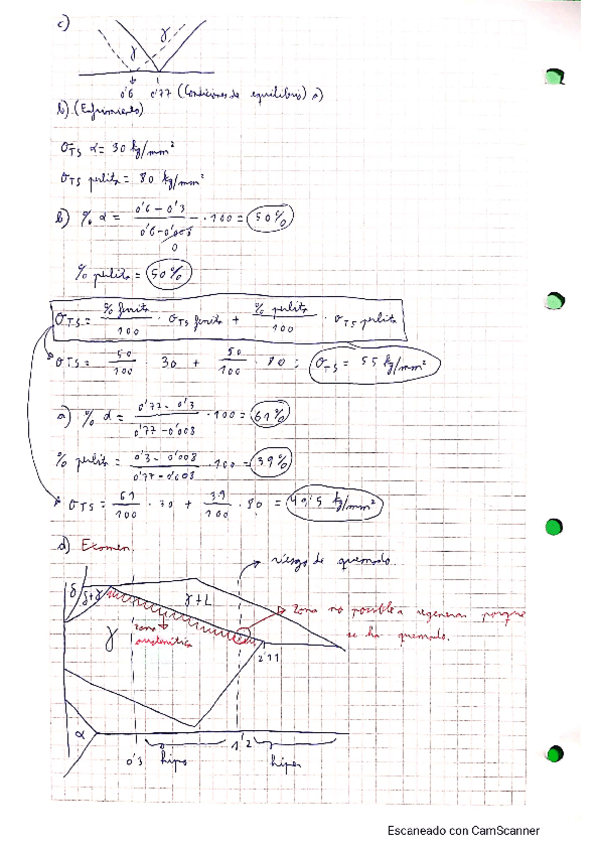 c)
γ γ
0'6 0'77 (Condiciones de equilibrio) a)
b) (Enfriamiento)
σTS α = 30 kg/mm²
σTS perlita = 80 kg/mm²
b) % α = (0'6 - 0'3) / (0'6 - 0'008) · 100 = 50%
0
% perlita = 50%
σTS = % ferrita / 100 · σTS ferrita + % perlita / 100 · σTS perlita
σTS = 50/100 30 + 50/100 · 80 ; σTS = 55 kg/mm²
a) % α = (0'77 - 0'3) / (0'77 - 0'008) · 100 = 61%
% perlita = (0'3 - 0'008) / (0'77 - 0'008) · 100 = 39%
σTS = 61/100 · 30 + 39/100 · 80 = 49'5 kg/mm²
d) Examen.
riesgo de quemado.
δ δ+γ γ+L
Zona no posible a regenerar porque
se ha quemado.
γ zona
austenítica
2'11
α
0'3 hipo 1'2 hiper
Escaneado con CamScanner